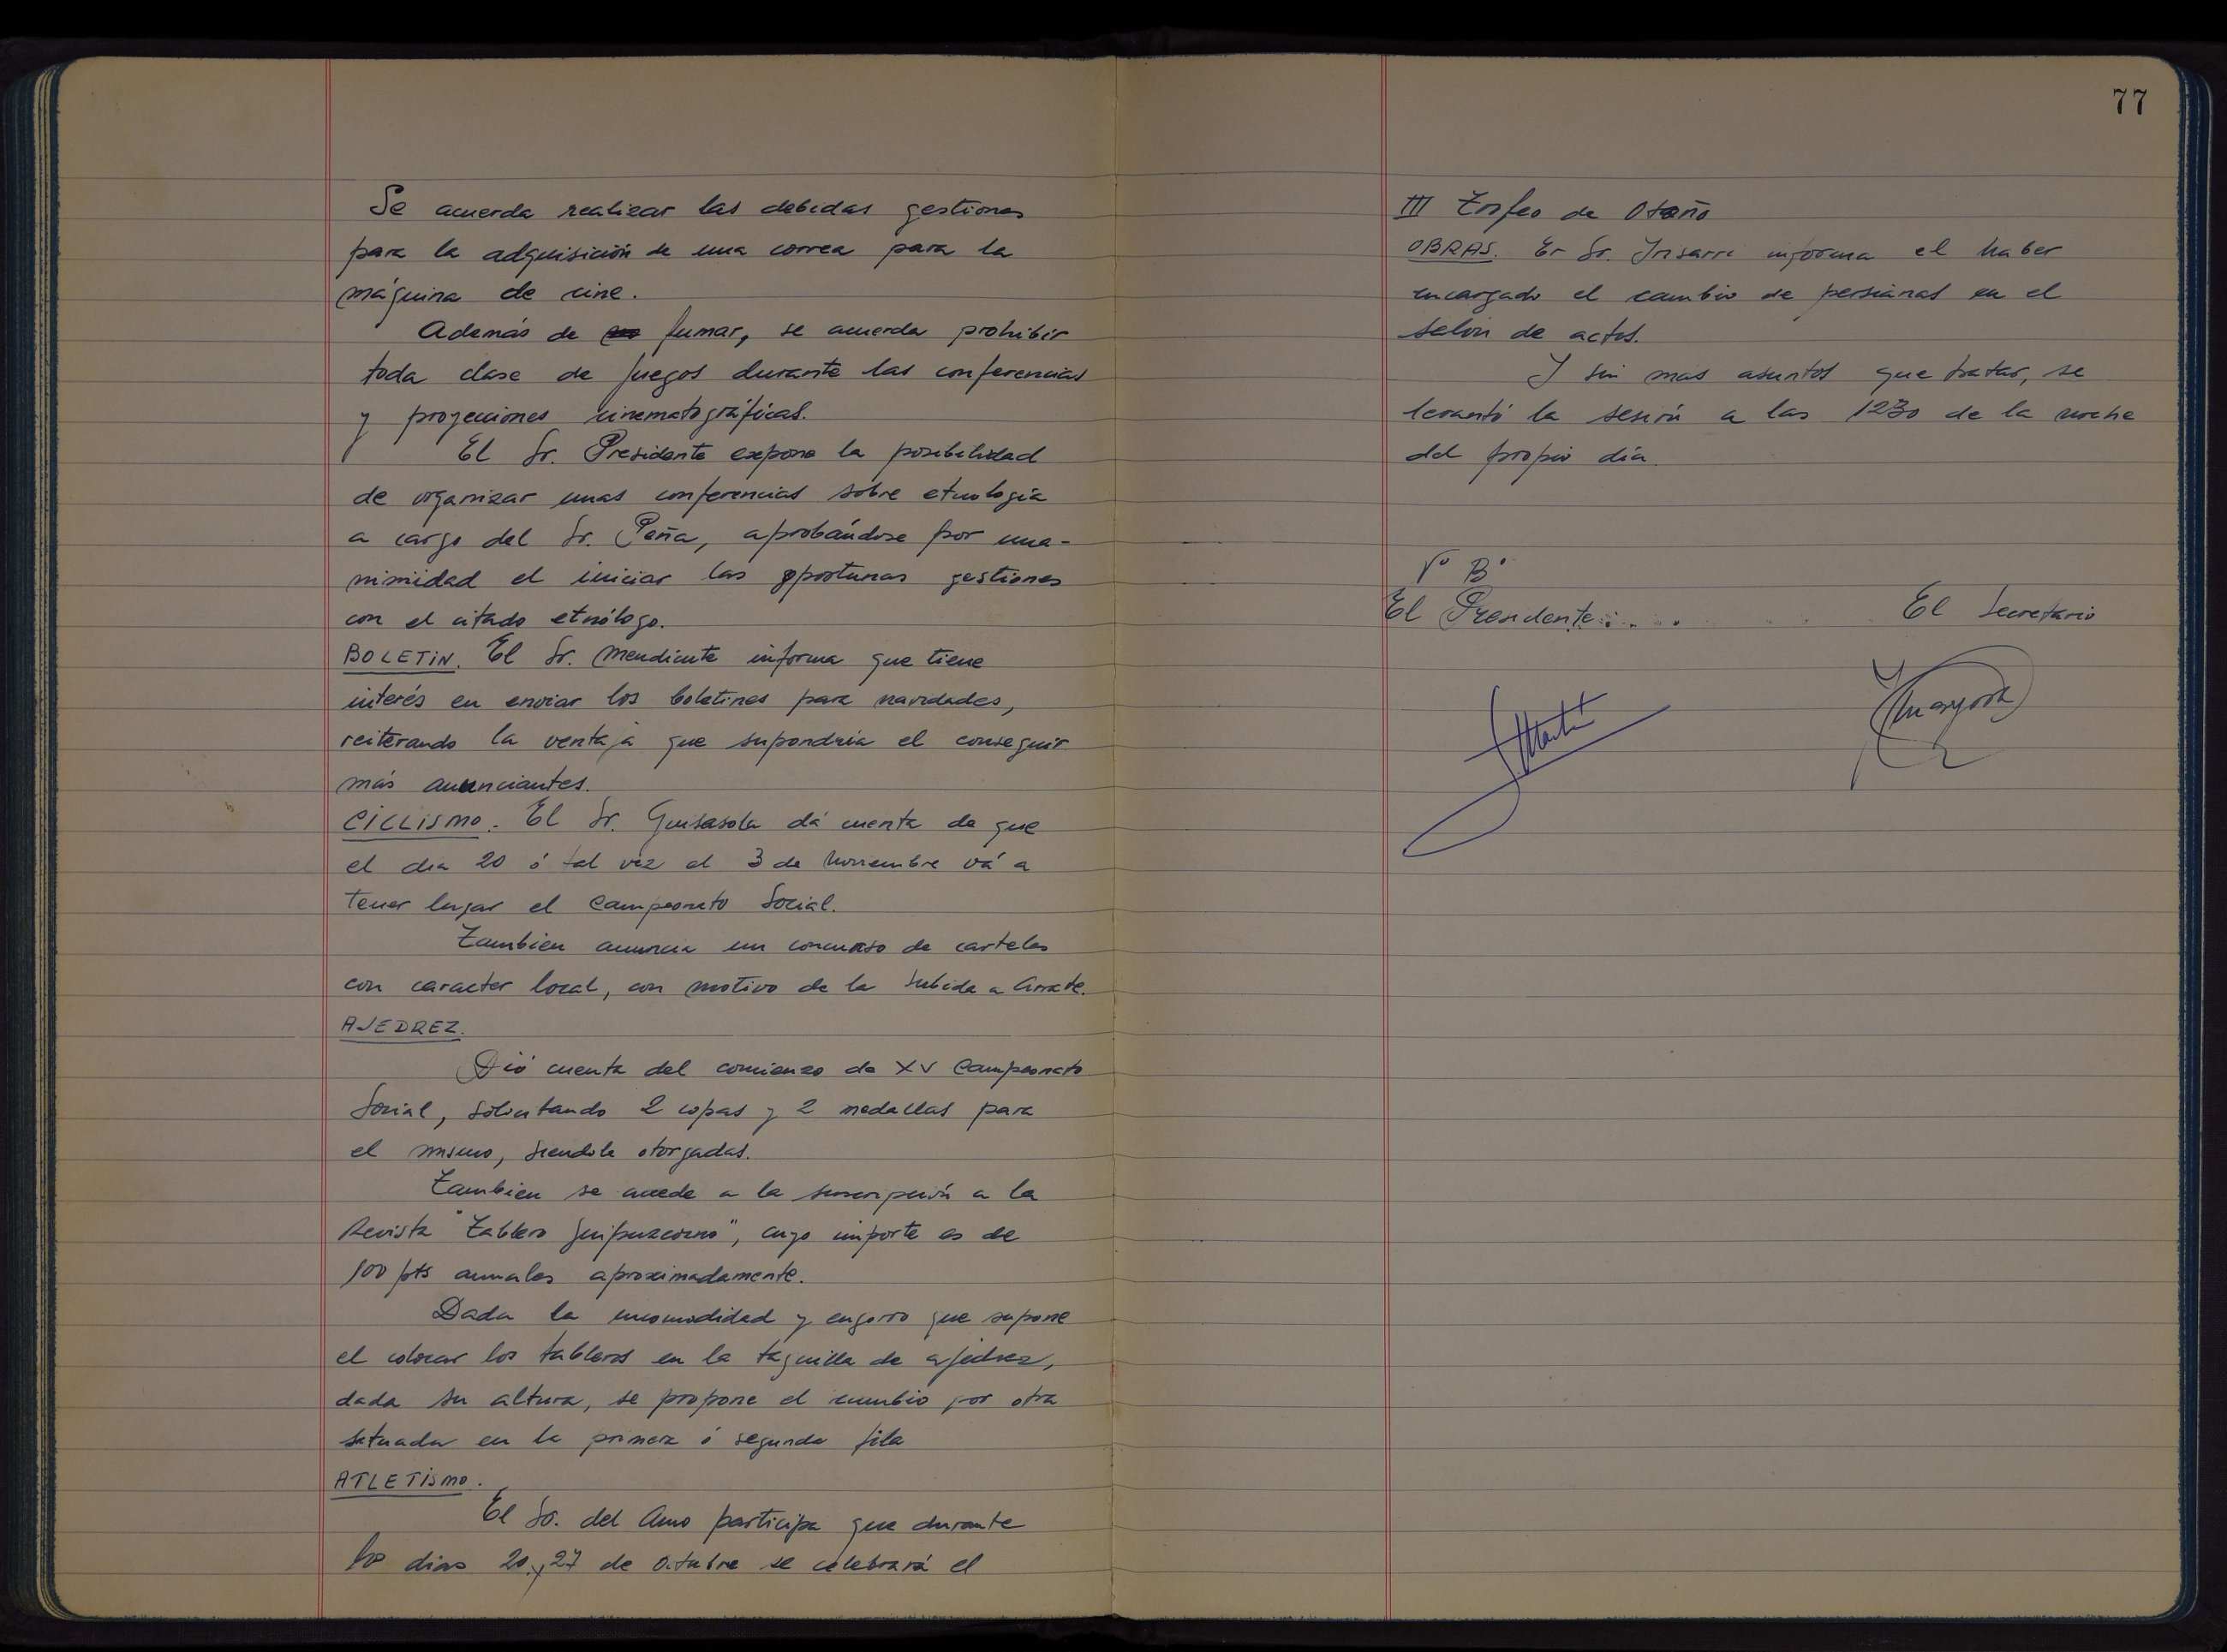 Se acuerda realizar las debidas gestiones
para la adquisición de una correa para la
máquina de cine.
Además de fumar, se acuerda prohibir
toda clase de juegos durante las conferencias
y proyecciones cinematográficas.
El Sr. Presidente expone la posibilidad
de organizar unas conferencias sobre etnología
a cargo del Sr. Peña, aprobándose por una-
nimidad el iniciar las oportunas gestiones
con el citado etnólogo.
BOLETIN. El Sr. Mendicute informa que tiene
interés en enviar los boletines para navidades,
reiterando la ventaja que supondria el conseguir
más anunciantes.
CICLISMO. El Sr. Guisasola dá cuenta de que
el dia 20 ó tal vez el 3 de Noviembre vá a
tener lugar el Campeonato Social.
Tambien anuncia un concurso de carteles
con caracter local, con motivo de la Subida a Arrate.
AJEDREZ.
Dió cuenta del comienzo de XV Campeonato
Social, solicitando 2 copas y 2 medallas para
el mismo, siendole otorgadas.
Tambien se accede a la suscripción a la
Revista "Tablero guipuzcoano", cuyo importe es de
100 pts anuales aproximadamente.
Dada la incomodidad y engorro que supone
el colocar los tableros en la taquilla de ajedrez,
dada su altura, se propone el cambio por otra
situada en la primera ó segunda fila
ATLETISMO.
El Sr. del Amo participa que durante
los dias 20 y 27 de Octubre se celebrará el
77
III Trofeo de Otoño
OBRAS. Er Sr. Irisarri informa el haber
encargado el cambio de persianas en el
salón de actos.
Y sin mas asuntos que tratar, se
levantó la sesión a las 1230 de la noche
del propio día.
Vº Bº
El Presidente
El Secretario